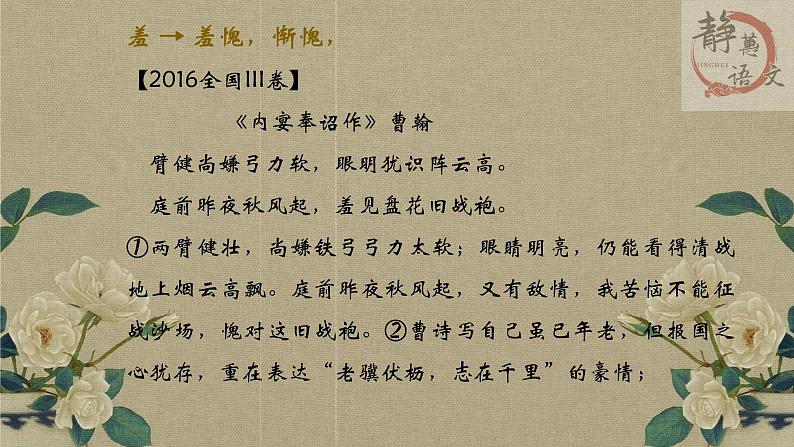 羞 → 羞愧，惭愧，
静蕙语文
MINGHUI
【2016全国III卷】
《内宴奉诏作》曹翰
臂健尚嫌弓力软，眼明犹识阵云高。
庭前昨夜秋风起，羞见盘花旧战袍。
①两臂健壮，尚嫌铁弓弓力太软；眼睛明亮，仍能看得清战
地上烟云高飘。庭前昨夜秋风起，又有敌情，我苦恼不能征
战沙场，愧对这旧战袍。②曹诗写自己虽已年老，但报国之
心犹存，重在表达“老骥伏枥，志在千里”的豪情；